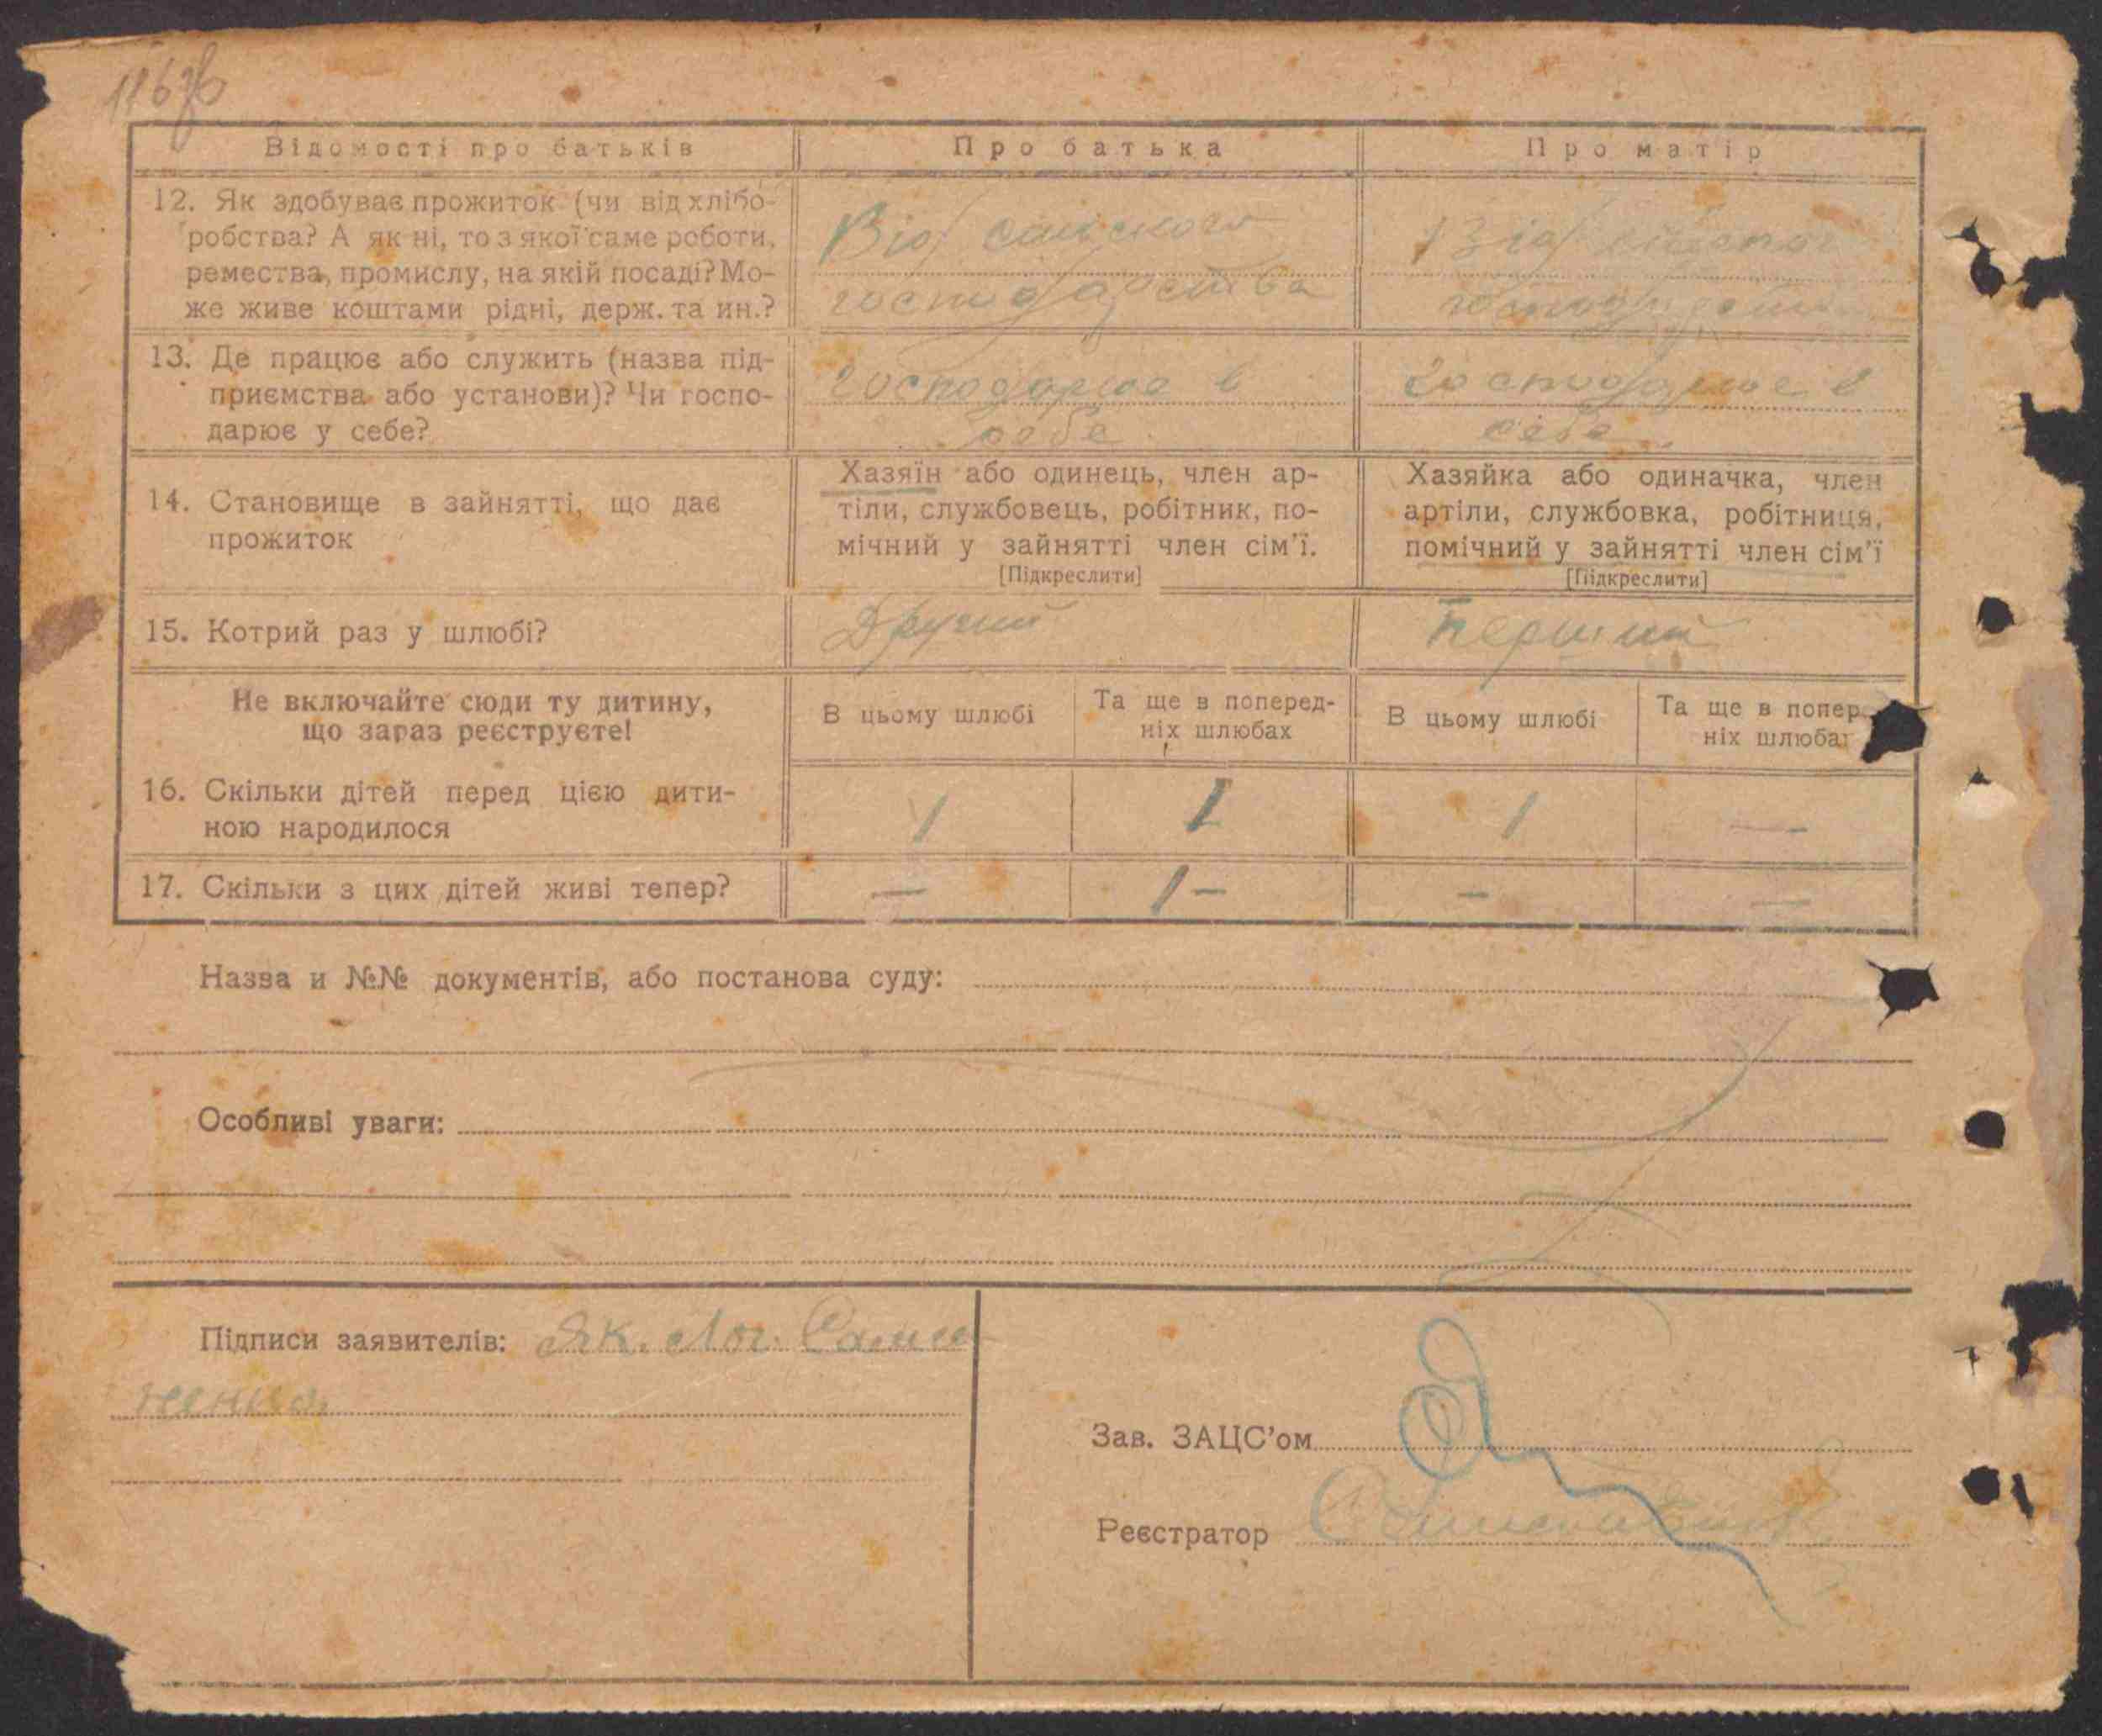 Відомості про батьків
Про батька
Про матір
12. Як здобуває прожиток (чи від хлібо-
робства? А як ні, то з якої саме роботи,
ремества, промислу, на якій посаді? Мо-
же живе коштами рідні, держ. та ин.?
Від сільского
господарства
Від
13. Де працює або служить (назва під-
приємства або установи)? Чи госпо-
дарює у себе?
Господарює в
себе
Господарює в
себе
14. Становище в зайнятті, що дає
прожиток
Хазяїн або одинець, член ар-
тіли, службовець, робітник, по-
мічний у зайнятті член сім'ї.
[Підкреслити]
Хазяйка або одиначка, член
артіли, службовка, робітниця,
помічний у зайнятті член сім'ї
[Підкреслити]
15. Котрий раз у шлюбі?
Другий
Перший
Не включайте сюди ту дитину,
що зараз реєструєте!
В цьому шлюбі
Та ще в поперед-
ніх шлюбах
В цьому шлюбі
Та ще в попер
ніх шлюбах
16. Скільки дітей перед цією дити-
ною народилося
1
1
1
—
17. Скільки з цих дітей живі тепер?
—
1 —
—
—
Назва и №№ документів, або постанова суду:
Особливі уваги:
Підписи заявителів: Як.
Зав. ЗАЦС'ом
Реєстратор